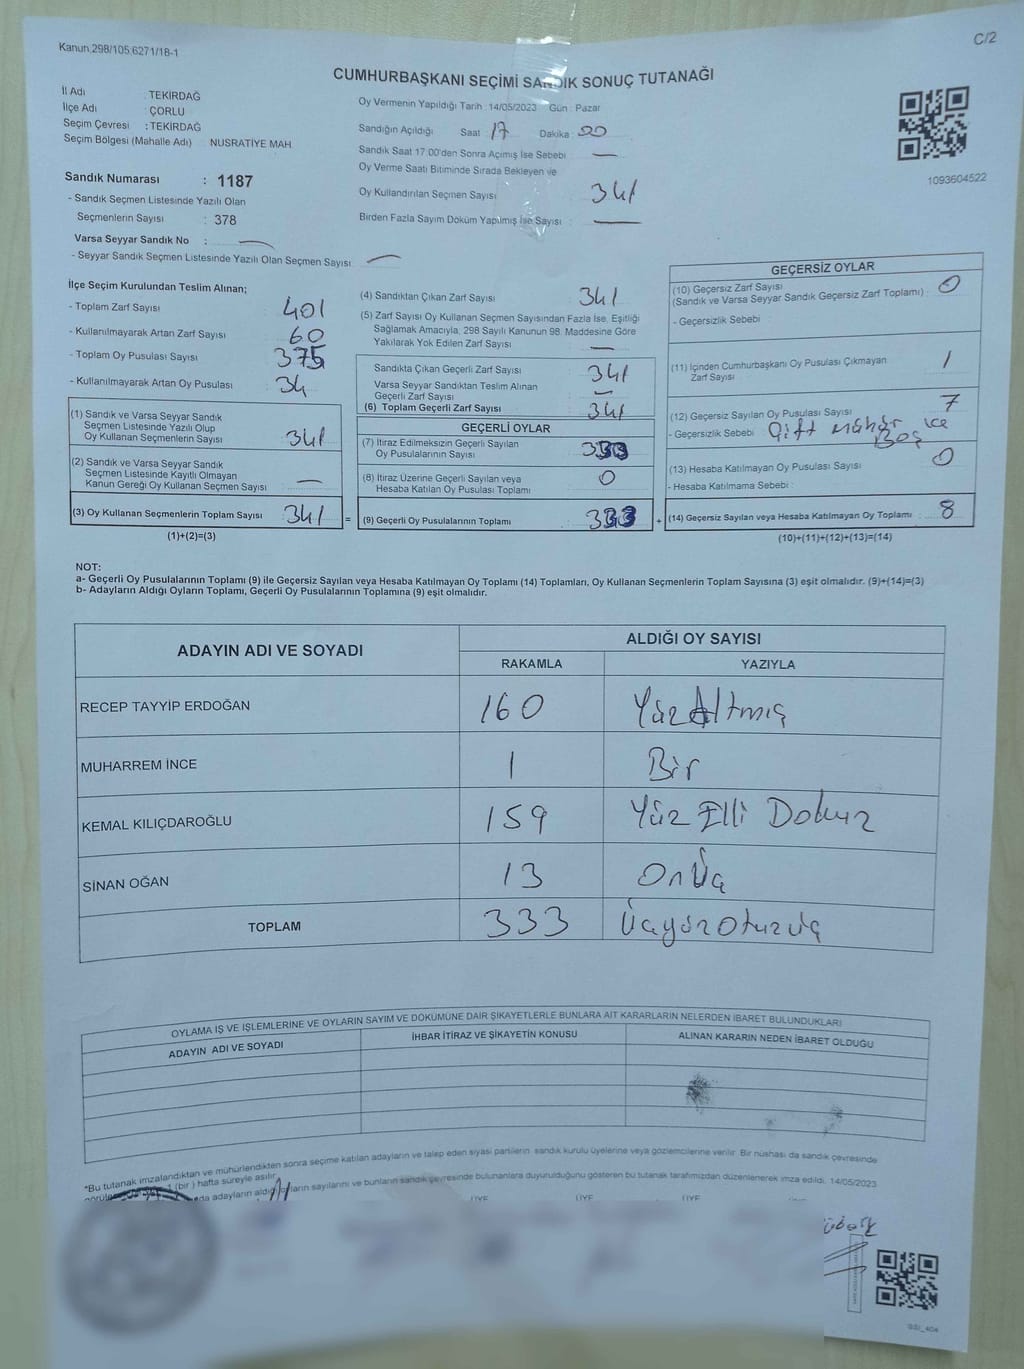 Kanun 298/105,6271/18-1
C/2
CUMHURBAŞKANI SEÇİMİ SANDIK SONUÇ TUTANAĞI
İl Adı : TEKİRDAĞ
İlçe Adı : ÇORLU
Seçim Çevresi : TEKİRDAĞ
Seçim Bölgesi (Mahalle Adı) NUSRATİYE MAH.
Oy Vermenin Yapıldığı Tarih : 14/05/2023 Gün : Pazar
Sandığın Açıldığı Saat : 17 Dakika : 00
Sandık Saat 17:00'den Sonra Açımış İse Sebebi : —
Oy Verme Saati Bitiminde Sırada Bekleyen ve
Oy Kullandırılan Seçmen Sayısı : 341
Birden Fazla Sayım Döküm Yapılmış İse Sayısı : —
1093604522
Sandık Numarası : 1187
- Sandık Seçmen Listesinde Yazılı Olan
Seçmenlerin Sayısı : 378
Varsa Seyyar Sandık No : —
- Seyyar Sandık Seçmen Listesinde Yazılı Olan Seçmen Sayısı: —
İlçe Seçim Kurulundan Teslim Alınan;
- Toplam Zarf Sayısı : 401
- Kullanılmayarak Artan Zarf Sayısı : 60
- Toplam Oy Pusulası Sayısı : 375
- Kullanılmayarak Artan Oy Pusulası : 34
(1) Sandık ve Varsa Seyyar Sandık
Seçmen Listesinde Yazılı Olup
Oy Kullanan Seçmenlerin Sayısı : 341
(2) Sandık ve Varsa Seyyar Sandık
Seçmen Listesinde Kayıtlı Olmayan
Kanun Gereği Oy Kullanan Seçmen Sayısı : —
(3) Oy Kullanan Seçmenlerin Toplam Sayısı : 341 =
(1)+(2)=(3)
(4) Sandıktan Çıkan Zarf Sayısı : 341
(5) Zarf Sayısı Oy Kullanan Seçmen Sayısından Fazla İse, Eşitliği
Sağlamak Amacıyla, 298 Sayılı Kanunun 98. Maddesine Göre
Yakılarak Yok Edilen Zarf Sayısı : —
Sandıkta Çıkan Geçerli Zarf Sayısı : 341
Varsa Seyyar Sandıktan Teslim Alınan
Geçerli Zarf Sayısı : —
(6) Toplam Geçerli Zarf Sayısı : 341
GEÇERLİ OYLAR
(7) İtiraz Edilmeksizin Geçerli Sayılan
Oy Pusulalarının Sayısı : 333
(8) İtiraz Üzerine Geçerli Sayılan veya
Hesaba Katılan Oy Pusulası Toplamı : 0
(9) Geçerli Oy Pusulalarının Toplamı : 333 +
GEÇERSİZ OYLAR
(10) Geçersiz Zarf Sayısı
(Sandık ve Varsa Seyyar Sandık Geçersiz Zarf Toplamı) : 0
- Geçersizlik Sebebi :
(11) İçinden Cumhurbaşkanı Oy Pusulası Çıkmayan
Zarf Sayısı : 1
(12) Geçersiz Sayılan Oy Pusulası Sayısı : 7
- Geçersizlik Sebebi : Çift mühür ve
Boş
(13) Hesaba Katılmayan Oy Pusulası Sayısı : 0
- Hesaba Katılmama Sebebi :
(14) Geçersiz Sayılan veya Hesaba Katılmayan Oy Toplamı : 8
(10)+(11)+(12)+(13)=(14)
NOT:
a- Geçerli Oy Pusulalarının Toplamı (9) ile Geçersiz Sayılan veya Hesaba Katılmayan Oy Toplamı (14) Toplamları, Oy Kullanan Seçmenlerin Toplam Sayısına (3) eşit olmalıdır. (9)+(14)=(3)
b- Adayların Aldığı Oyların Toplamı, Geçerli Oy Pusulalarının Toplamına (9) eşit olmalıdır.
ADAYIN ADI VE SOYADI ALDIĞI OY SAYISI
RAKAMLA YAZIYLA
RECEP TAYYİP ERDOĞAN 160 YüzAltmış
MUHARREM İNCE 1 Bir
KEMAL KILIÇDAROĞLU 159 Yüz Elli Dokuz
SİNAN OĞAN 13 OnÜç
TOPLAM 333 Üçyüzotuzüç
OYLAMA İŞ VE İŞLEMLERİNE VE OYLARIN SAYIM VE DÖKÜMÜNE DAİR ŞİKAYETLERLE BUNLARA AİT KARARLARIN NELERDEN İBARET BULUNDUKLARI
ADAYIN ADI VE SOYADI İHBAR İTİRAZ VE ŞİKAYETİN KONUSU ALINAN KARARIN NEDEN İBARET OLDUĞU
*Bu tutanak imzalandıktan ve mühürlendikten sonra seçime katılan adayların ve talep eden siyasi partilerin sandık kurulu üyelerine veya gözlemcilerine verilir. Bir nüshası da sandık çevresinde
(bir) hafta süreyle asılır.
adayların aldığı oyların sayılarını ve bunların sandık çevresinde bulunanlara duyurulduğunu gösteren bu tutanak tarafımızdan düzenlenerek imza edildi. 14/05/2023
ÜYE ÜYE ÜYE